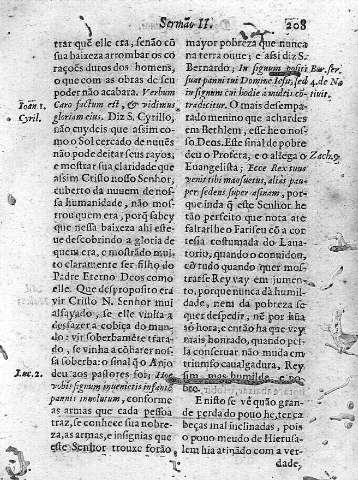 Sermão II. 208
trar quẽ elle era, senão cõ
sua baixeza arrombar os co
raçoẽs duros dos homens,
o que com as obras de seu
poder não acabara. Verbum
Ioan. 1. Caro factum est, & vidimus
Cyril. gloriam eius. Diz S. Cyrillo,
não cuydeis que assim co-
mo o Sol cercado de nuuẽs
não pode deitar seus rayos,
e mostrar sua claridade que
assim Cristo nosso Senhor,
cuberto da nuuem de nos-
sa humanidade, não mos-
trou quem era, porq̃ sabey
que nessa baixeza ahi este-
ue descobrindo a gloria de
quem era, e mostrãdo mui-
to claramente ser filho do
Padre Eterno Deos como
elle. Que desproposito era
vir Cristo N. Senhor mui
alfayado, se elle vinha a
desfazer a cobiça do mun-
do: vir soberbamẽte trata-
do, se vinha a cõbater nos-
sa soberba: o sinal q̃ o Anjo
Luc. 2. deu aos pastores foi: Hoc
vobis signum inuenietis infantẽ
pannis inuolutum, conforme
as armas que cada pessoa
traz, se conhece sua nobre-
za, as armas, e insignias que
este Senhor trouxe forão
mayor pobreza que nunca
na terra ouue; e assi diz S.
Bernardo; In signum positi Ber. ser.
sunt panni tui Domine Iesu, sed 4. de Na
in signum cui hodie à multis cõ-
tradicitur. O mais desempa-
rado menino que achardes
em Bethlem, esse he o nos-
so Deos. Este sinal de pobre
deu o Profeta, e o allega o Zach. 9.
Euangelista; Ecce Rex tuus
venit tibi mansuetus, alias pau-
per sedens super asinam, por-
que inda q̃ este Senhor he
tão perfeito que nota ate
faltarlhe o Fariseu cõ a cor-
tesia costumada do Laua-
torio, quando o conuidou,
cõ tudo quando quer mos-
trarse Rey vay em jumen-
to, porque nunca da humil-
dade, nem da pobreza se
quer despedir, nẽ por hũa
só hora, e então ha que vay
mais honrado, quando pel-
la conseruar não muda em
triumfo caualgadura, Rey
sim, mas humilde, e po-
bre.
E nisto se vé quão gran-
de perda do pouo he, ter ca-
beças mal inclinadas, pois
o pouo meudo de Hierusa-
lem hia atinãdo com a ver-
dade,